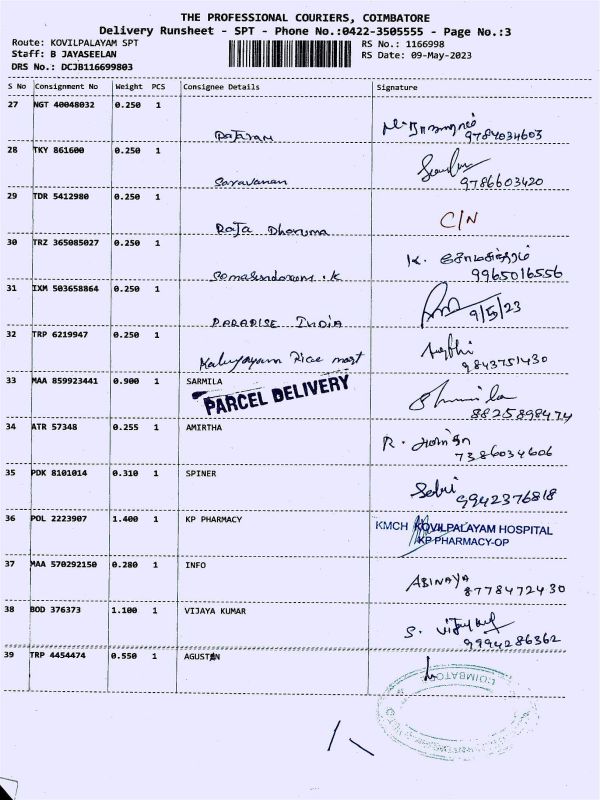 THE PROFESSIONAL COURIERS, COIMBATORE
Delivery Runsheet - SPT - Phone No.:0422-3505555 - Page No.:3
Route: KOVILPALAYAM SPT
Staff: B JAYASEELAN
DRS No.: DCJB116699803
RS No.: 1166998
RS Date: 09-May-2023
S No Consignment No Weight PCS Consignee Details Signature
27 NGT 40048032 0.250 1
Rajaram 9784034603
28 TKY 861600 0.250 1
Saravanan 9786603420
29 TDR 5412980 0.250 1
Raja Dharuma C/N
30 TRZ 365085027 0.250 1
K. சோமசுந்தரம்
Somasundaram.K 9965016556
31 IXM 503658864 0.250 1
PARADISE INDIA 9/5/23
32 TRP 6219947 0.250 1
Rice mart 9843751430
33 MAA 859923441 0.900 1 SARMILA
PARCEL DELIVERY
8825898474
34 ATR 57348 0.255 1 AMIRTHA
R.
7386034606
35 PDK 8101014 0.310 1 SPINER
Selvi 9942376818
36 POL 2223907 1.400 1 KP PHARMACY
KMCH KOVILPALAYAM HOSPITAL
KP PHARMACY-OP
37 MAA 570292150 0.280 1 INFO
ABINAYA
8778472430
38 BOD 376373 1.100 1 VIJAYA KUMAR
S.
9994286362
39 TRP 4454474 0.550 1 AGUSTIN
COIMBATORE